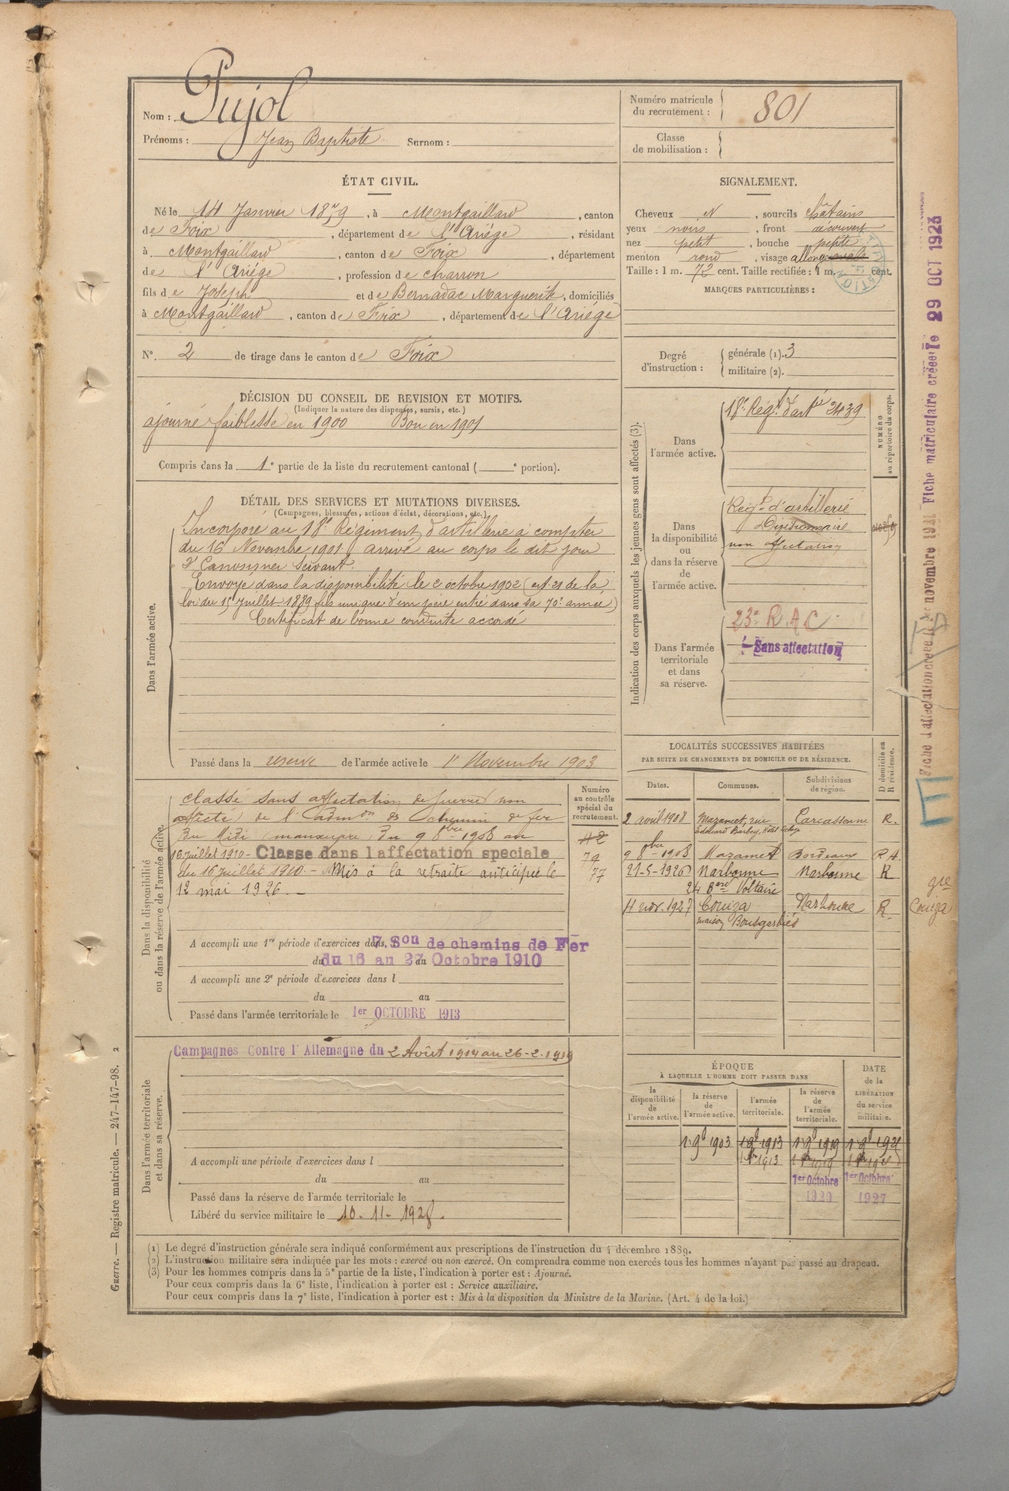 Nom : Pujol
Prénoms : Jean Baptiste Surnom :
Numéro matricule
du recrutement : 801
Classe
de mobilisation :
ÉTAT CIVIL.
Né le 14 Janvier 1879, à Montgaillard, canton
de Foix, département de l'Ariège, résidant
à Montgaillard, canton de Foix, département
de l'Ariège, profession de charron
fils de Joseph et de Bernadac Marguerite, domiciliés
à Montgaillard, canton de Foix, département de l'Ariège
N° 2 de tirage dans le canton de Foix
SIGNALEMENT.
Cheveux N, sourcils châtains
yeux noirs, front découvert
nez petit, bouche petite
menton rond, visage allongé ovale
Taille : 1 m. 72 cent. Taille rectifiée : 1 m. cent.
MARQUES PARTICULIÈRES :
Degré
d'instruction :
générale (1). 3
militaire (2).
DÉCISION DU CONSEIL DE REVISION ET MOTIFS.
(Indiquer la nature des dispenses, sursis, etc.)
ajourné faiblesse en 1900 Bon en 1901
Compris dans la 1e partie de la liste du recrutement cantonal ( e portion).
DÉTAIL DES SERVICES ET MUTATIONS DIVERSES.
(Campagnes, blessures, actions d'éclat, décorations, etc.)
Dans l'armée active.
Incorporé au 18e Régiment d'artillerie à compter
du 16 Novembre 1901 arrivé au corps le dit jour
2e Canonnier Servant.
Envoyé dans la disponibilité le 2 octobre 1902 (art 21 de la
loi du 15 Juillet 1889 fils unique d'un père entré dans sa 70e année)
Certificat de bonne conduite accordé
Passé dans la réserve de l'armée active le 1er Novembre 1903
Indication des corps auxquels les jeunes gens sont affectés (3).
NUMÉRO
au répertoire du corps.
Dans
l'armée active.
18e Régt d'artie 2439
Dans
la disponibilité
ou
dans la réserve
de
l'armée active.
Régt d'artillerie
non affectation
Dans l'armée
territoriale
et dans
sa réserve.
23e R.A.C
Sans affectation
LOCALITÉS SUCCESSIVES HABITÉES
PAR SUITE DE CHANGEMENTS DE DOMICILE OU DE RÉSIDENCE.
Dates. Communes. Subdivisions
de région. D domicile ou
R résidence.
2 avril 1908 Mazamet, rue Carcassonne R.
9 8bre 1908 Mazamet Bordeaux R A
21-5-1926 Narbonne Narbonne R
24 Bard Voltaire
11 nov. 1927 Couiza Narbonne R.
Couiza
Dans la disponibilité
ou dans la réserve de l'armée active.
Numéro
au contrôle
spécial du
recrutement.
Classé sans affectation de guerre non
affecté de l'Admon des Chemin de fer
du Midi manoeuvre du 9 8bre 1908 au
16 juillet 1910 - Classé dans l'affectation spéciale
du 16 juillet 1910 - Mis à la retraite anticipée le
12 mai 1926. -
A accompli une 1re période d'exercices dans 7 Son de chemins de Fer
du 16 au 27 Octobre 1910
A accompli une 2e période d'exercices dans l
du au
Passé dans l'armée territoriale le 1er OCTOBRE 1913
Dans l'armée territoriale
et dans sa réserve.
Campagnes Contre l'Allemagne du 2 Août 1914 au 26-2-1919
A accompli une période d'exercices dans l
du au
Passé dans la réserve de l'armée territoriale le
Libéré du service militaire le 10-11-1928.
ÉPOQUE
À LAQUELLE L'HOMME DOIT PASSER DANS
la
disponibilité
de
l'armée active.
la réserve
de
l'armée active.
l'armée
territoriale.
la réserve
de
l'armée
territoriale.
DATE
de la
LIBÉRATION
du service
militaire.
1er 9b 1903 1er 9b 1913 1er 9b 1919
1er Octobre 1er Octobre
1920 1927
(1) Le degré d'instruction générale sera indiqué conformément aux prescriptions de l'instruction du 4 décembre 1889.
(2) L'instruction militaire sera indiquée par les mots : exercé ou non exercé. On comprendra comme non exercés tous les hommes n'ayant pas passé au drapeau.
(3) Pour les hommes compris dans la 5e partie de la liste, l'indication à porter est : Ajourné.
Pour ceux compris dans la 6e liste, l'indication à porter est : Service auxiliaire.
Pour ceux compris dans la 7e liste, l'indication à porter est : Mis à la disposition du Ministre de la Marine. (Art. 4 de la loi.)
Guerre. — Registre matricule. — 247-147-98. 2
Fiche matriculaire créée le 29 OCT 1923